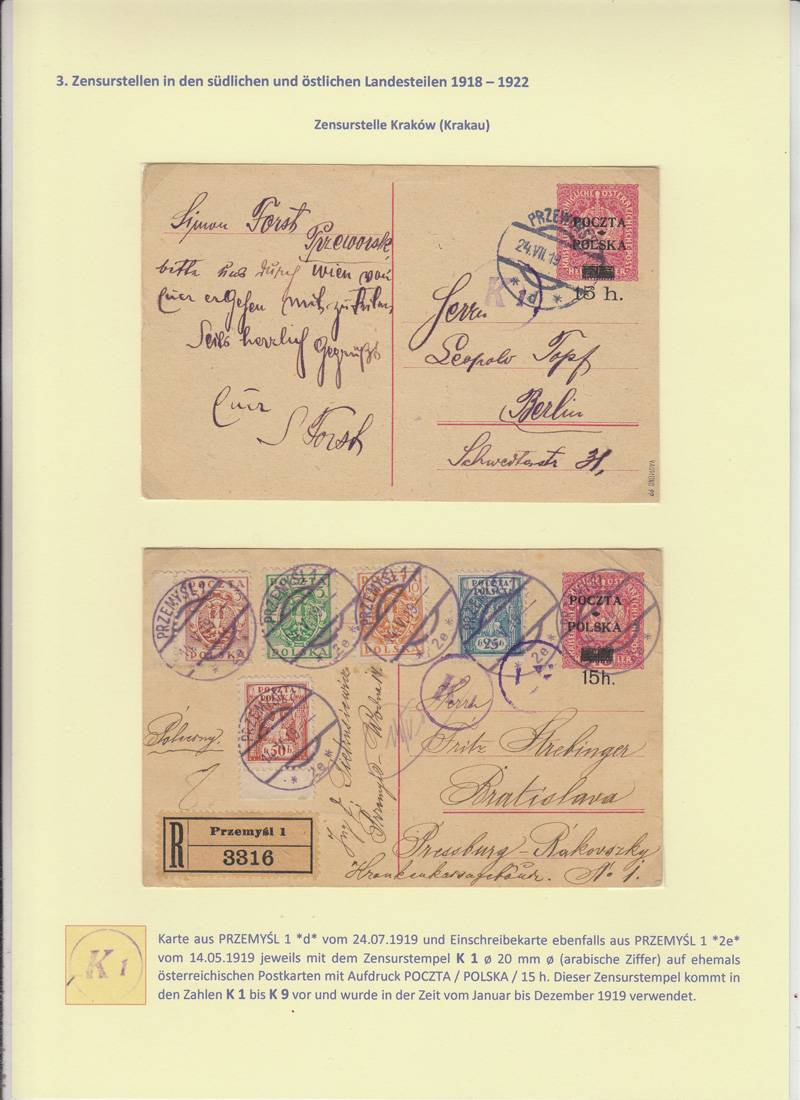 3. Zensurstellen in den südlichen und östlichen Landesteilen 1918 – 1922
Zensurstelle Kraków (Krakau)
Simon Forst
Przeworsk
bitte uns durch Wien von
Euer ergehen mitzuteilen
Seits herzlich Gegrüßt
Euer
S Forst
PRZEWORSK
24.VII.19
* 1d *
POCZTA
POLSKA
HELLER
15 h.
K
Herrn
Leopold Topf
Berlin
Schwedterstr 31,
PRZEMYŚL 1
POCZTA
POLSKA
* 2e *
PRZEMYŚL 1
POCZTA
POLSKA
* 2e *
PRZEMYŚL 1
POCZTA
10
POLSKA
VI.19
* 2e *
PRZEMYŚL
POCZTA
POLSKA
25
* 2e *
POCZTA
POLSKA
15 h.
POCZTA
POLSKA
50 F.
PRZEMYŚL
* 2e *
K
Polecony.
Przemyśl
Herrn
Fritz Strebinger
Bratislava
Pressburg - Rákovszky
Krankenkassagebäude. No 1.
R
Przemyśl 1
3316
K 1
Karte aus PRZEMYŚL 1 *d* vom 24.07.1919 und Einschreibekarte ebenfalls aus PRZEMYŚL 1 *2e*
vom 14.05.1919 jeweils mit dem Zensurstempel K 1 ø 20 mm ø (arabische Ziffer) auf ehemals
österreichischen Postkarten mit Aufdruck POCZTA / POLSKA / 15 h. Dieser Zensurstempel kommt in
den Zahlen K 1 bis K 9 vor und wurde in der Zeit vom Januar bis Dezember 1919 verwendet.